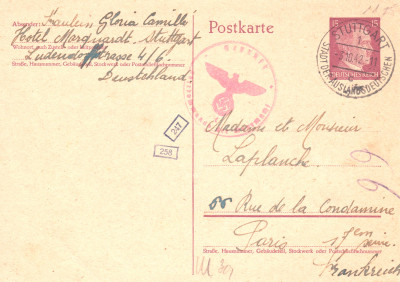 Absender: Fräulein Gloria Camillé
Hotel Marquardt. Stuttgart
Wohnort, auch Zustell- oder Leitpostamt
Ludendorffstrasse 4/6.
Straße, Hausnummer, Gebäudeteil, Stockwerk oder Postschließfachnummer
Deutschland.
Postkarte
15
15
DEUTSCHES REICH
STUTTGART
STADT DER AUSLANDSDEUTSCHEN
Geprüft
Oberkommando der Wehrmacht
247
258
Madame et Monsieur
Laplanche.
88 Rue de la Condamine
Paris 17em
Seine.
Straße, Hausnummer, Gebäudeteil, Stockwerk oder Postschließfachnummer
Frankreich